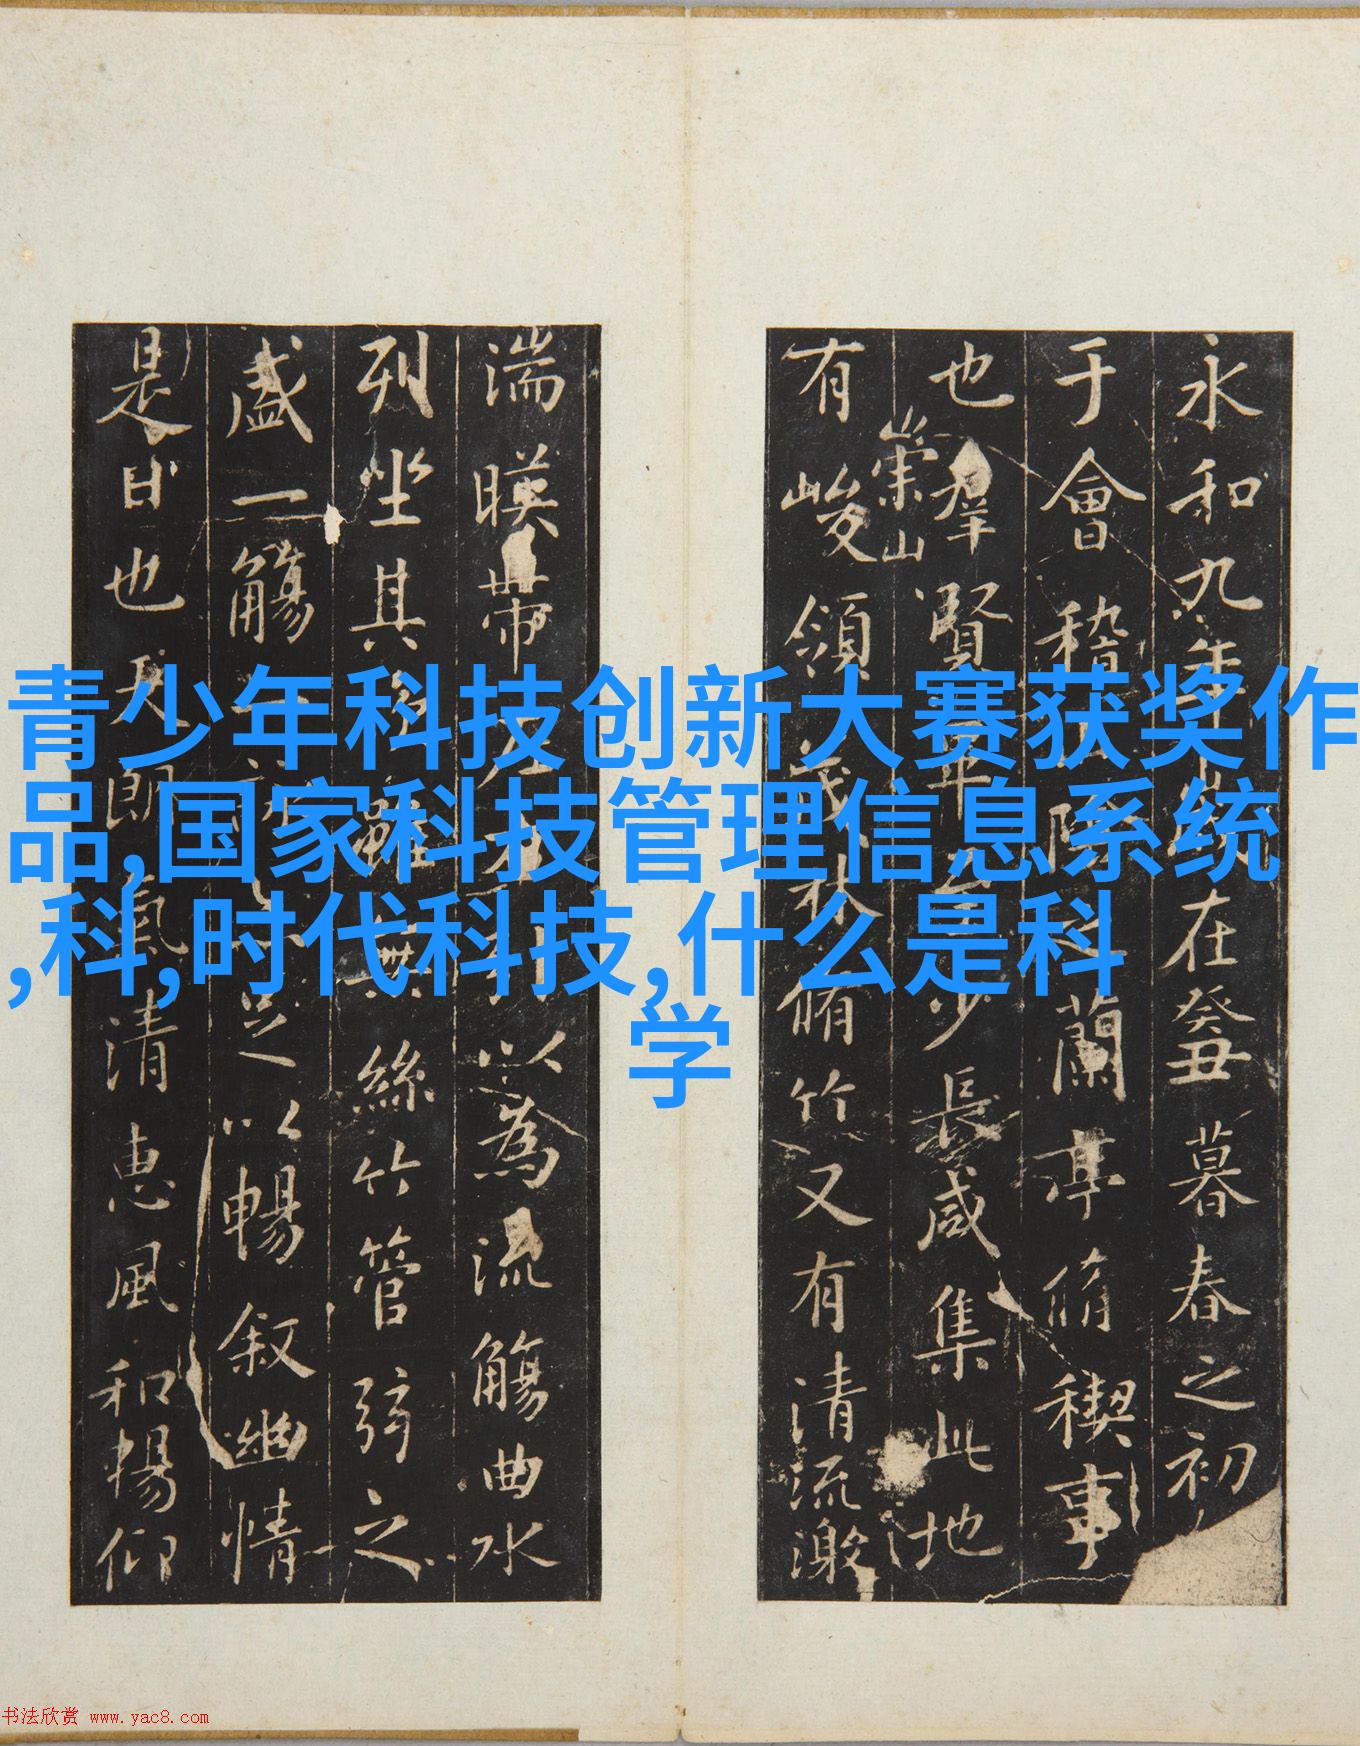 青少年科技创新大赛获奖作
品,国家科技管理信息系统
,科,时代科技,什么是科
学
永和九年在癸丑暮春之初
于會稽陰之蘭亭脩禊事
也羣賢畢至少長咸集此地
有崇山峻領茂林脩竹又有清流激
湍暎帶左右以為流觴曲水
列坐其次雖無絲竹管弦之
盛一觴一足以暢叙幽情
是日也天朗氣清惠風和暢仰
书法欣赏 www.yac8.com